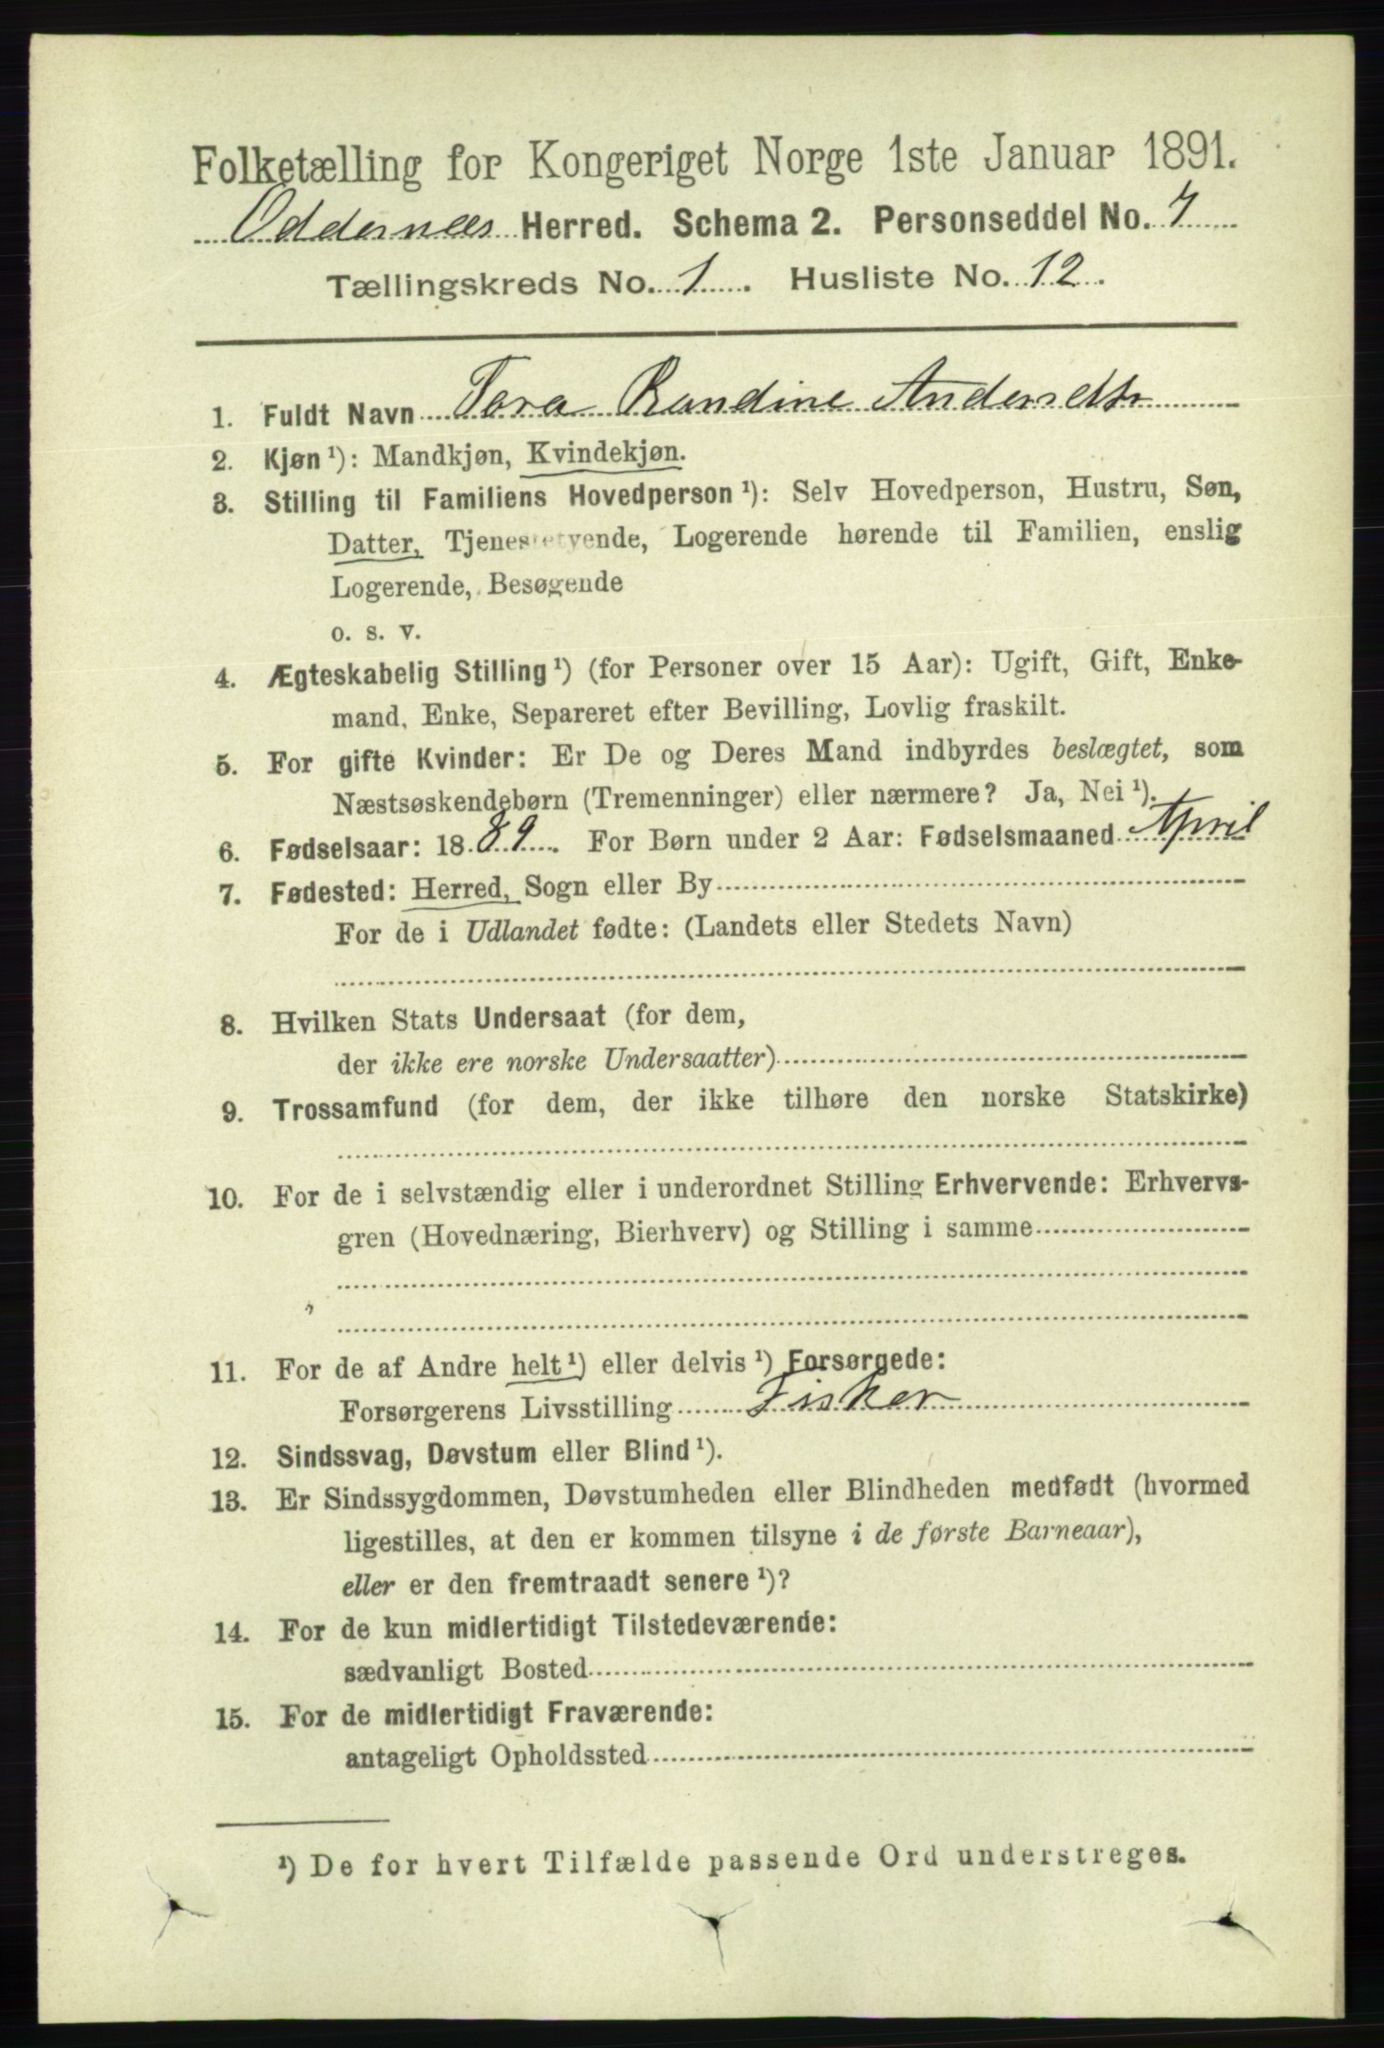 Folketælling for Kongeriget Norge 1ste Januar 1891.
Oddernæs Herred. Schema 2. Personseddel No. 7
Tællingskreds No. 1. Husliste No. 12.
1. Fuldt Navn Tora Randine Andersdtr
2. Kjøn ¹): Mandkjøn, Kvindekjøn.
3. Stilling til Familiens Hovedperson ¹): Selv Hovedperson, Hustru, Søn,
Datter, Tjenestetyende, Logerende hørende til Familien, enslig
Logerende, Besøgende
o. s. v.
4. Ægteskabelig Stilling ¹) (for Personer over 15 Aar): Ugift, Gift, Enke-
mand, Enke, Separeret efter Bevilling, Lovlig fraskilt.
5. For gifte Kvinder: Er De og Deres Mand indbyrdes beslægtet, som
Næstsøskendebørn (Tremenninger) eller nærmere? Ja, Nei ¹).
6. Fødselsaar: 1889. For Børn under 2 Aar: Fødselsmaaned April
7. Fødested: Herred, Sogn eller By
For de i Udlandet fødte: (Landets eller Stedets Navn)
8. Hvilken Stats Undersaat (for dem,
der ikke ere norske Undersaatter)
9. Trossamfund (for dem, der ikke tilhøre den norske Statskirke)
10. For de i selvstændig eller i underordnet Stilling Erhvervende: Erhvervs-
gren (Hovednæring, Bierhverv) og Stilling i samme
11. For de af Andre helt ¹) eller delvis ¹) Forsørgede:
Forsørgerens Livsstilling Fisker
12. Sindssvag, Døvstum eller Blind ¹).
13. Er Sindssygdommen, Døvstumheden eller Blindheden medfødt (hvormed
ligestilles, at den er kommen tilsyne i de første Barneaar),
eller er den fremtraadt senere ¹)?
14. For de kun midlertidigt Tilstedeværende:
sædvanligt Bosted
15. For de midlertidigt Fraværende:
antageligt Opholdssted
¹) De for hvert Tilfælde passende Ord understreges.